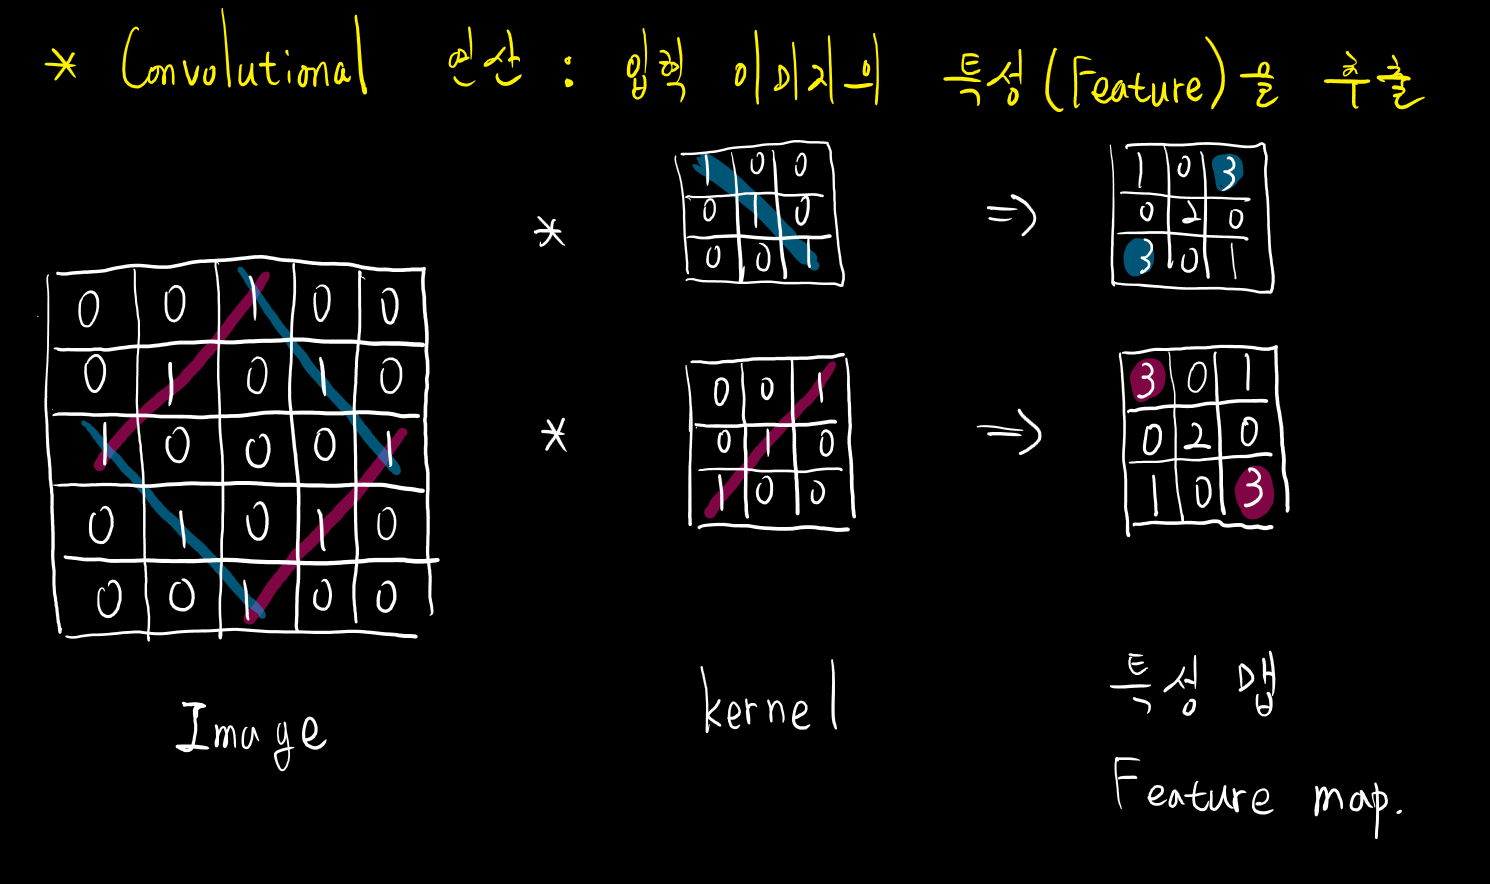 * Convolutional 연산 : 입력 이미지의 특성(Feature)을 추출
0 0 1 0 0
0 1 0 1 0
1 0 0 0 1
0 1 0 1 0
0 0 1 0 0
Image
*
1 0 0
0 1 0
0 0 1
⇒
1 0 3
0 2 0
3 0 1
*
0 0 1
0 1 0
1 0 0
⇒
3 0 1
0 2 0
1 0 3
kernel
특성 맵
Feature map.